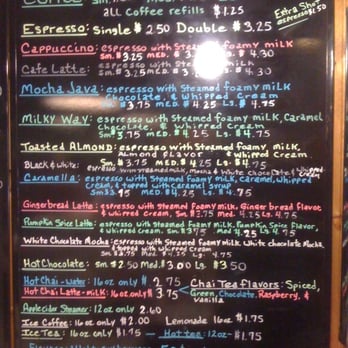 Coffee
all Coffee refills $1.25
Extra Shot
espresso $1.50
Espresso: Single $2.50 Double $3.25
Cappuccino: espresso with Steamed foamy milk
Sm. $3.25 med. $3. Lg. $4.30
Cafe Latte: espresso with Steamed foamy milk
Sm. $3.25 med. $3. Lg. $4.30
Mocha Java: espresso with Steamed foamy milk
Chocolate, & Whipped Cream
Sm. $3.75 MED. $4.25 Lg. $4.75
Milky Way: espresso with Steamed foamy milk, Caramel
Chocolate, & Whipped Cream
Sm. $3.75 MED. $4.25 Lg. $4.75
Toasted Almond: espresso with Steamed foamy milk,
Almond Flavor & whipped cream
Sm. $3.75 MED. $4.25 Lg. $4.75
Black & white: espresso with steamed milk, mocha & white chocolate,
Caramella: espresso with Steamed foamy milk, Caramel, whipped
cream, & topped with Caramel syrup
Sm $3.75 med. $4.25 Lg. $4.75
Gingerbread Latte: espresso with Steamed foamy milk, Gingerbread flavor,
& whipped cream, Sm. $3.75 med. 4.25 Lg. 4.75
Pumpkin Spice Latte: espresso with Steamed foamy milk, Pumpkin Spice Flavor,
& whipped cream, Sm. $3.75 med 4.25 Lg. 4.75
White Chocolate Mocha: espresso with Steamed foamy milk, White chocolate Mocha,
& topped with Whipped Cream
Sm. $3.75 med. $4.25 Lg. $4.75
Hot Chocolate: Sm $2.50 Med. $3.00 Lg. $3.50
Hot Chai-Water: 16oz only $2.75
Hot Chai Latte-milk: 16oz only $3.75
Chai Tea flavors: Spiced,
Green, Chocolate, Raspberry, &
Vanilla
Apple Cider Steamer: 12oz only 2.60
Ice Coffee: 16oz only $2.00 Lemonade 16oz $1.75
Ice Tea: 16oz only $1.75 Hot tea: 12oz $1.75